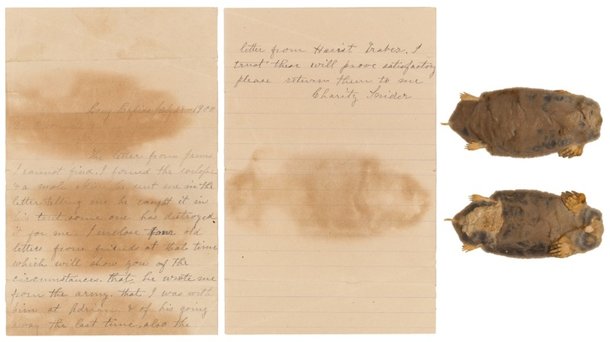 Long Rapids 1900
The letter from James
I cannot find. I found the envelope
& a mole skin he sent me in the
letter telling me he caught it in
his tent some one has destroyed
it for me. I inclose four old
letters from friends at that time
which will show you of the
circumstances, that he wrote me
from the army, that I was with
him at Adrian, & of his going
away the last time, also the
letter from I
trust these will prove satisfactory
please return them to me
Charity Snider